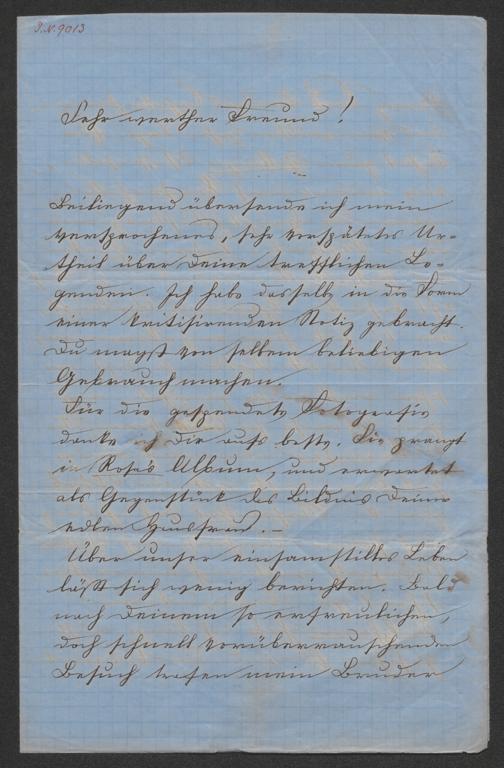 I.N. 9013
Sehr werther Freund!
Beiliegend übersende ich mein
versprochenes, sehr verspätetes Ur=
theil über Deine trefflichen Le=
genden. Ich habe dasselbe in die Form
einer kritisirenden Notiz gebracht.
Du magst von selbem beliebigen
Gebrauch machen.
Für die gespendete Fotografie
danke ich Dir aufs beste. Sie prangt
in Rosa's Album, und erwartet
als Gegenstück das Bildnis Deiner
edlen Hausfrau. —
Über unser einsamstilles Leben
läßt sich wenig berichten. Bald
nach Deinem so erfreulichen,
doch schnell vorüberrauschenden
Besuch trafen mein Bruder